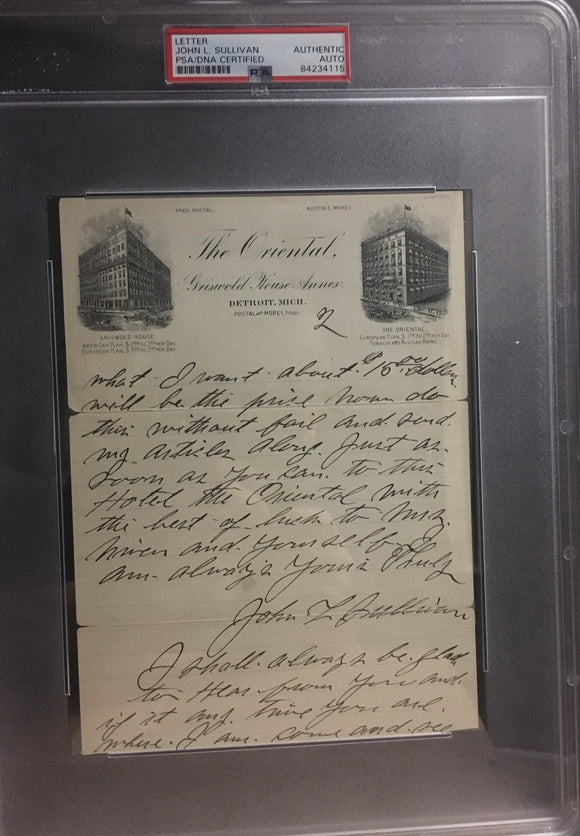 LETTER
JOHN L. SULLIVAN
PSA/DNA CERTIFIED
AUTHENTIC
AUTO
84234115
PSA
FRED. POSTAL.
AUSTIN E. MOREY
The Oriental,
Griswold House Annex.
DETROIT, MICH.
POSTAL and MOREY, Props.
2
GRISWOLD HOUSE
AMERICAN PLAN, $ PER DAY.
EUROPEAN PLAN, $ PER DAY.
THE ORIENTAL,
EUROPEAN PLAN, $ PER DAY.
TURKISH AND RUSSIAN BATHS
what I want about $15.00 dollars
will be the prise now do
this without fail and send
my articles along Just as
soon as you can to this
Hotel the Oriental with
the best of luck to Mrs.
and yourself I
am always yours Truly
John L Sullivan
I shall always be glad
to Hear from you and
if at any time you are
where I am come and see